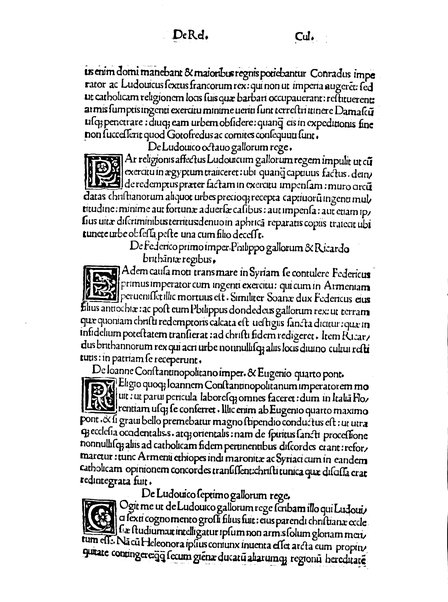 De Rel. Cul.
us enim domi manebant & maioribus regnis potiebantur Conradus impe
rator ac Ludouicus sextus francorum rex: qui non ut imperia augerẽt: sed
ut catholicam religionem locis suis quæ barbari occupauerant: restituerent
armis sumptis ingenti exercitu minime ueriti sunt terrestri itinere Damascũ
usq; penetrare: diuq; eam urbem obsidere: quanq̃ eis in expeditionis fine
non successerit quod Gotofredus ac comites consequuti sunt.
De Ludouico octauo gallorum rege.
PAr religionis affectus Ludouicum gallorum regem impulit ut cũ
exercitu in ægyptum traiiceret: ubi quanq̃ captiuus factus. dein/
de redemptus præter factam in exercitu impensam: muro circũ
datas christianorum aliquot urbes precioq; recepta captiuorũ ingenti mul
titudine: minime aut fortunæ aduersæ casibus: aut impensa: aut etiam ip/
sius uitæ discriminibus territus: denuo in aphricã reparatis copiis traiecit ubi
tunete urbe obsessa peste una cum filio decessit.
De Federico primo imper. Philippo gallorum & Ricardo
brithãniæ regibus.
EAdem causa moti trans mare in Syriam se contulere Federicus
primus imperator cum ingenti exercitu: qui cum in Armeniam
peruenisset illic mortuus est. Similiter Soanæ dux Federicus eius
filius antiochiæ: ac post eum Philippus dondedeus gallorum rex: ut terram
quæ quoniam christi redemptoris calcata est uestigiis sancta dicitur: quæ in
infidelium potestatem transierat: ad christi fidem redigeret. Item Ricar/
dus brithannorum rex qui acri urbe nonnullisq; aliis locis diuino cultui resti
tutis: in patriam se receperunt.
De Ioanne Constantinopolitano imper. & Eugenio quarto pont.
REligio quoq; Ioannem Constantinopolitanum imperatorem mo
uit: ut parui pericula laboresq; omnes faceret: dum in Italiã flo/
rentiam usq; se conferret. Illic enim ab Eugenio quarto maximo
pont. & si graui bello premebatur magno stipendio conductus est: ut utra
q; ecclesia occidentalis. atq; orientalis: nam de spiritus sancti processione
nonnullisq; aliis ad catholicam fidem pertinentibus discordes erant: refor/
maretur: tunc Armeni ethiopes indi maronitæ ac Syriaci cum in eandem
catholicam opinionem concordes transissent: christi tunica quæ discissa erat
redintegrata fuit.
De Ludouico septimo gallorum rege.
COgit me ut de Ludouico gallorum rege scribam illo qui Ludoui/
ci sexti cognomento grossi filius fuit: eius parendi christianæ eccle
siæ studium: ut intelligatur ipsum non armis solum gloriam meri/
tum esse. Nã cũ Heleonora ipsius coniunx inuenta esset arcta eum propin/
quitate contingere: quã secum gienæ ducatũ aliarumq; regionũ hereditatẽ